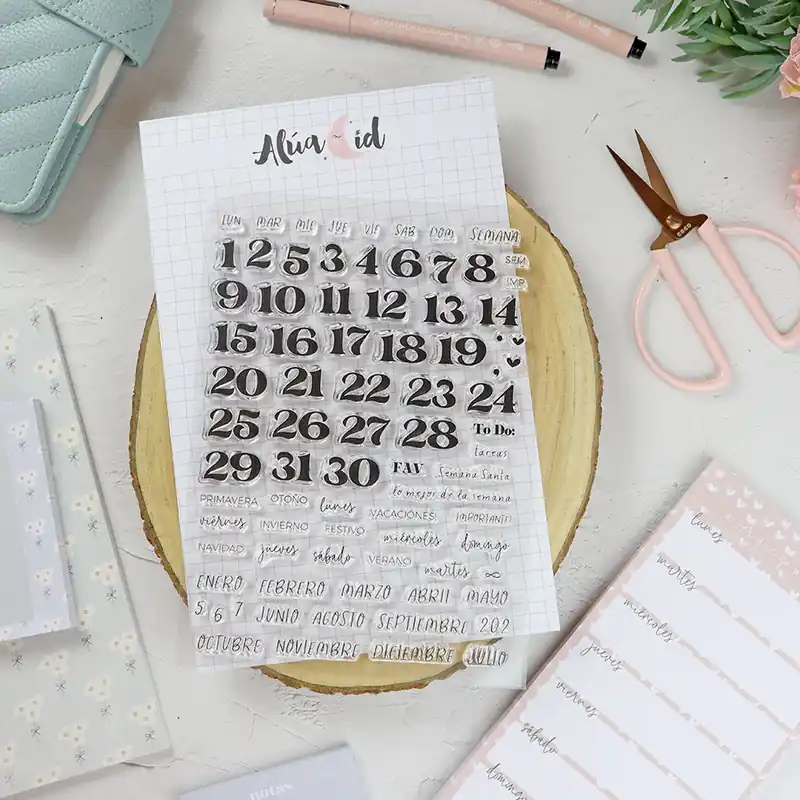 Alúa Cid
LUN MAR MIE JUE VIE SAB DOM SEMANA
1 2 5 3 4 6 7 8 SEM
IMP
9 10 11 12 13 14
15 16 17 18 19
20 21 22 23 24
25 26 27 28 To Do:
tareas
29 31 30 FAV Semana Santa
lo mejor de la semana
PRIMAVERA OTOÑO lunes VACACIONES IMPORTANTE
viernes INVIERNO FESTIVO miércoles domingo
NAVIDAD jueves sábado VERANO martes ∞
ENERO FEBRERO MARZO ABRIL MAYO
5 6 7 JUNIO AGOSTO SEPTIEMBRE 202
OCTUBRE NOVIEMBRE DICIEMBRE JULIO
COCO
lunes
martes
miércoles
jueves
viernes
sábado
domingo
notas